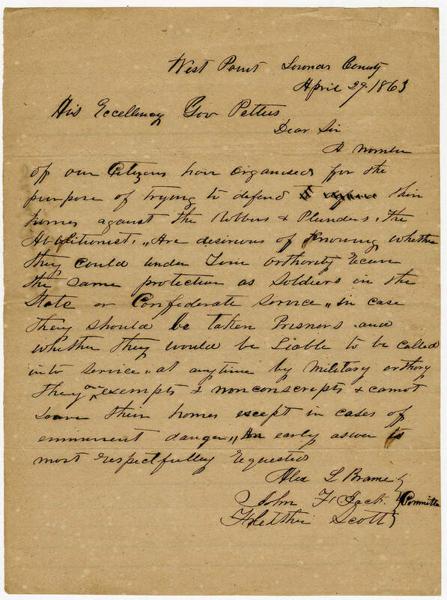 West Point Lownds County
April 29 1863
His Excellency Gov Pettus
Dear Sir
A number
of our Citizens have organised for the
purpose of trying to defend their
homes against the Robbers & Plunders, the
Abolitionist, Are desirous of knowing whether
they could under Your authority Secure
the same protection as Soldiers in the
State or Confederate Service in case
they should be taken Prisners and
whether they would be Liable to be called
into service at anytime by military
They are exempts & nonconscripts & cannot
leave their homes except in cases of
emminent danger, An early answer is
most respectfully requested
Alex L Brame
John F Jack Committee
Fletcher Scott